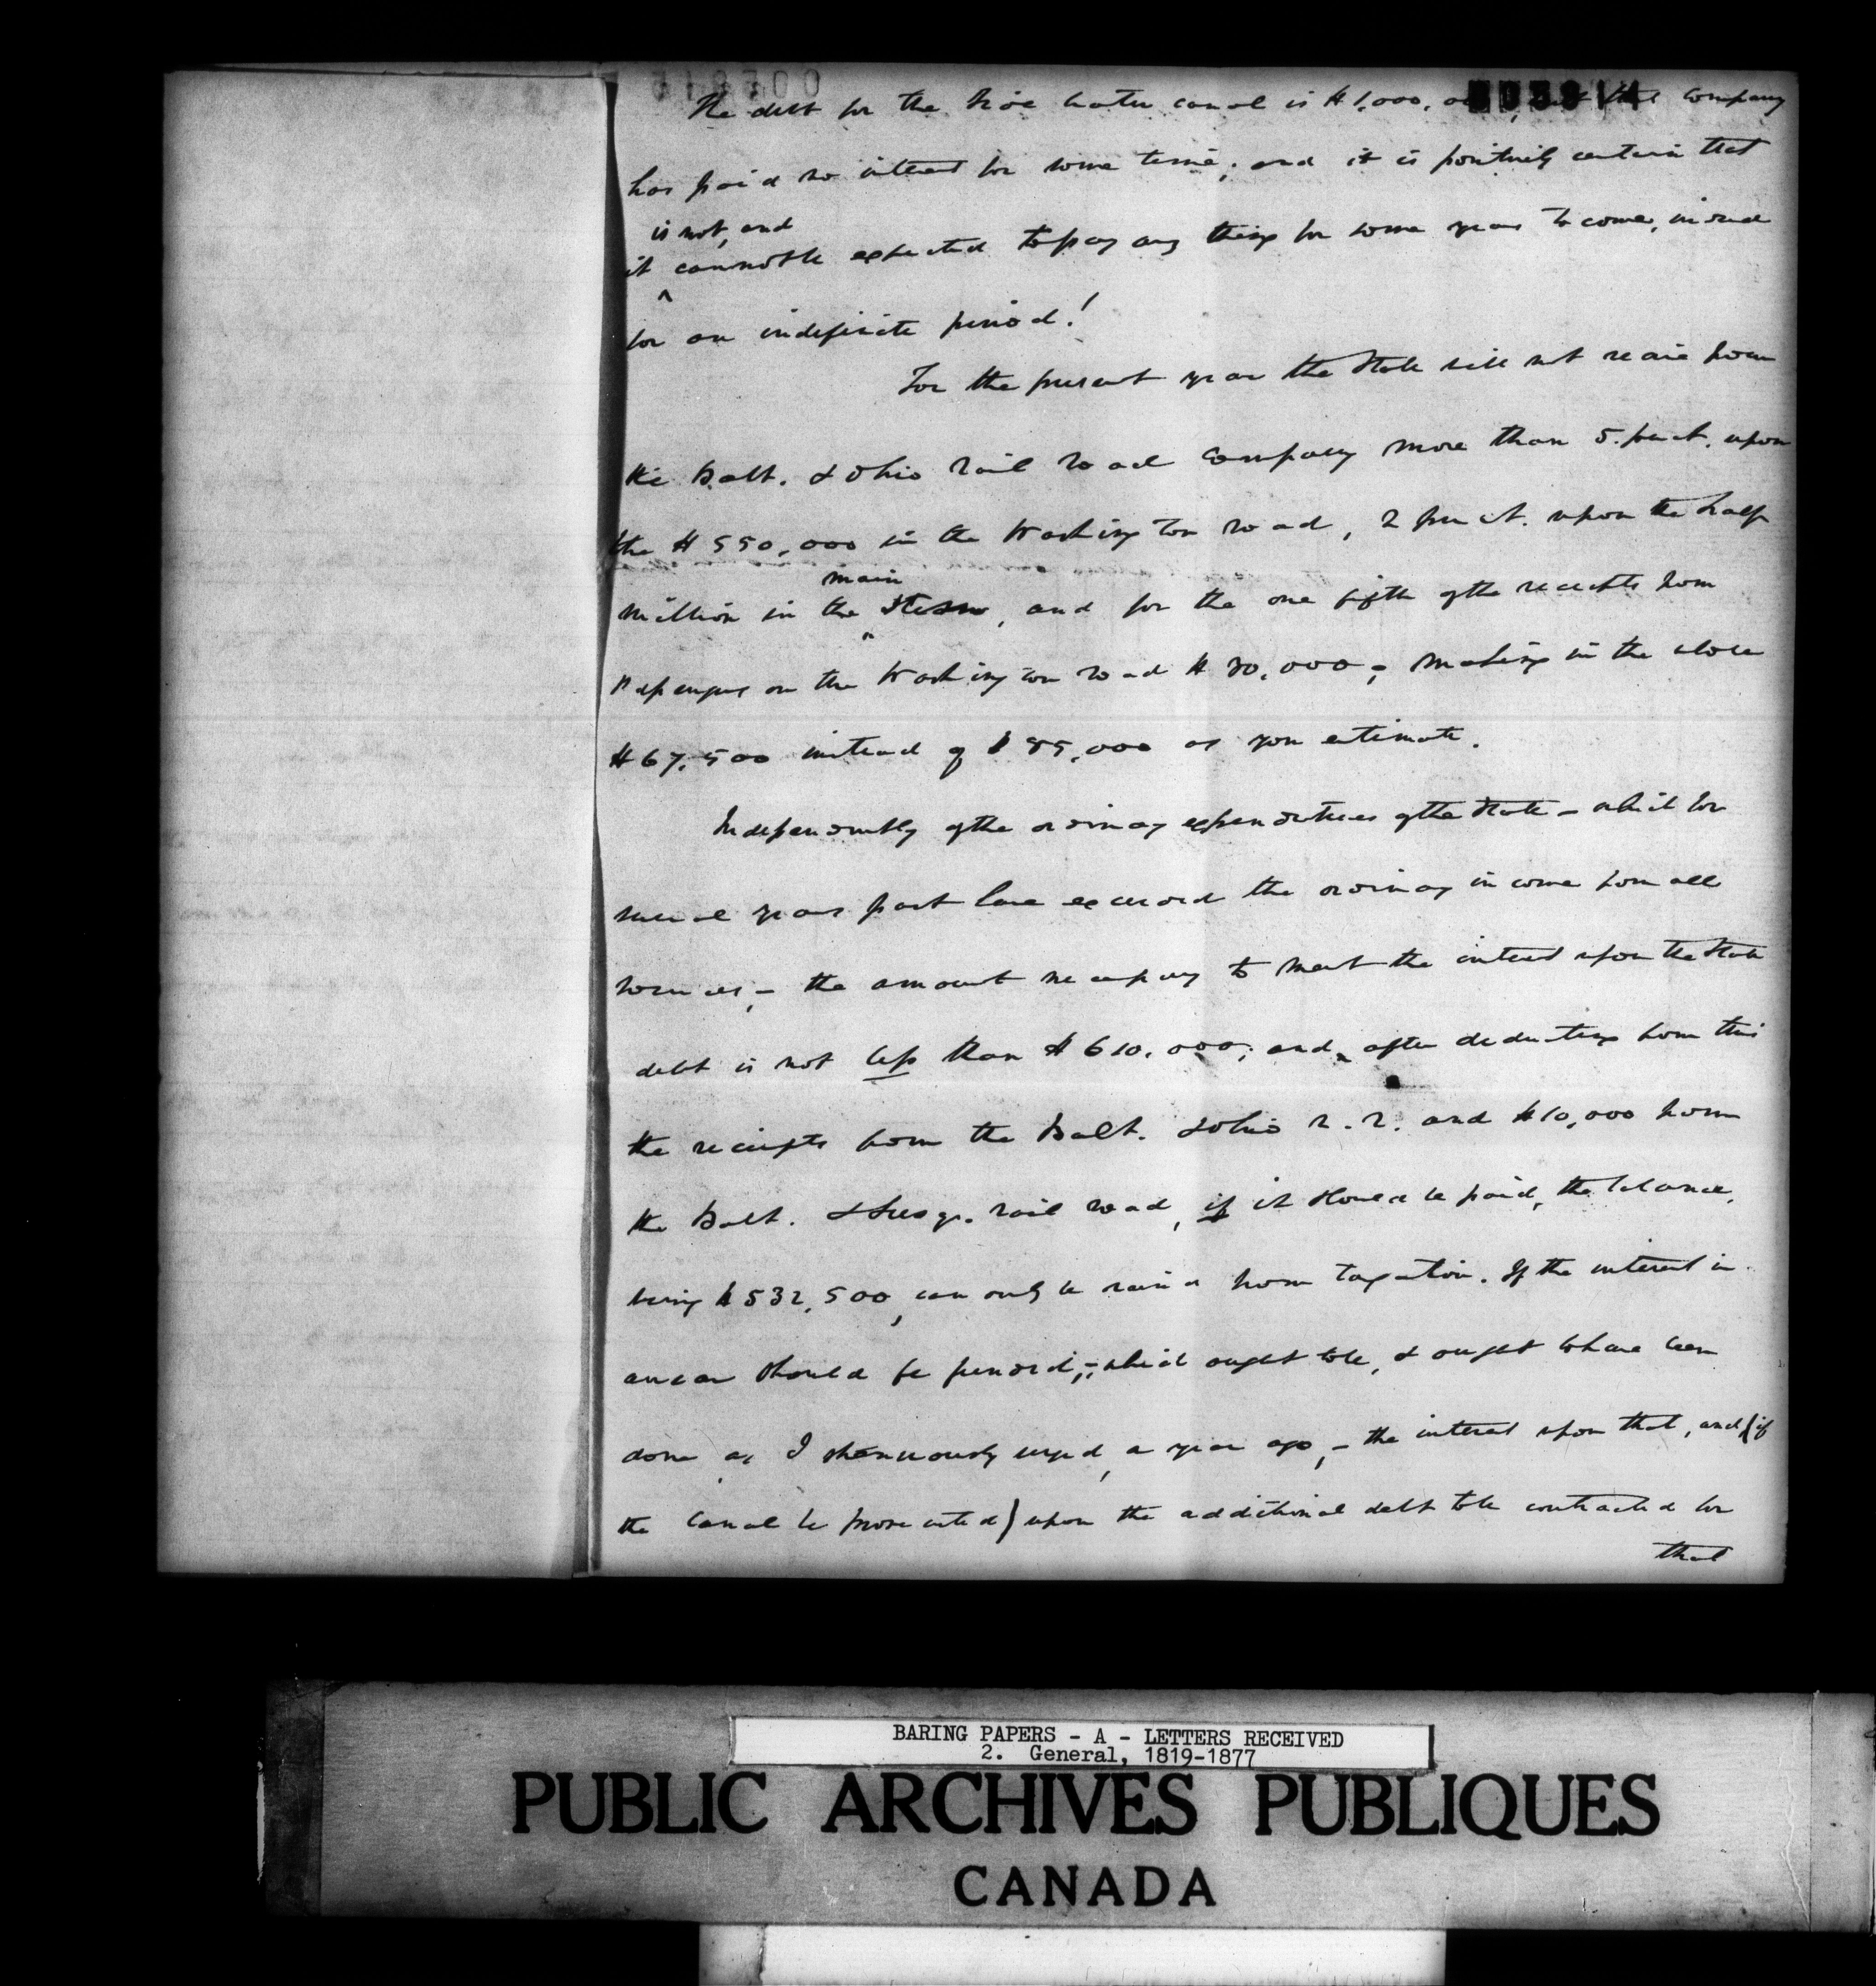 The debt for the tide water canal is $1,000,000, but that Company
has paid no interest for some time; and it is positively certain that
is not, and
it cannot be expected to pay any thing for some years to come, indeed
^
for an indefinite period!
For the present year the State will not receive from
the Balt. & Ohio rail road Company more than 5. per ct. upon
the $550,000 in the Washington road, 2 per ct. upon the half
main
million in the Stem, and for the one fifth of the receipts from
^
passengers on the Washington road $30,000; making in the whole
$67,500 instead of $85,000 as you estimate.
Independently of the ordinary expenditures of the State – which for
several years past have exceeded the ordinary income from all
sources, – the amount necessary to meet the interest upon the State
debt is not less than $610,000; and, after deducting from this
the receipts from the Balt. & Ohio r. r. and $10,000 from
the Balt. & Susqa. rail road, if it should be paid, the balance,
being $532,500, can only be raised from taxation. If the interest in
arrear should be funded, – which ought to be, & ought to have been
done as I strenuously urged, a year ago, – the interest upon that, and (if
the Canal be prosecuted) upon the additional debt to be contracted for
that
BARING PAPERS - A - LETTERS RECEIVED
2. General, 1819-1877
PUBLIC ARCHIVES PUBLIQUES
CANADA